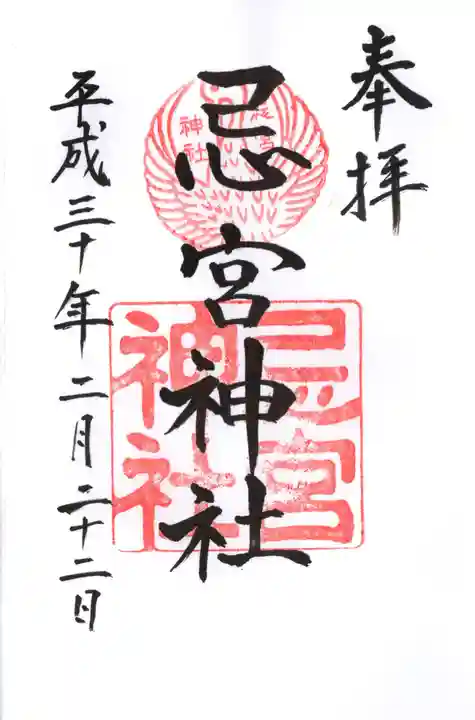 奉拝
忌宮神社
忌宮
神社
忌宮
神社
平成三十年二月二十二日